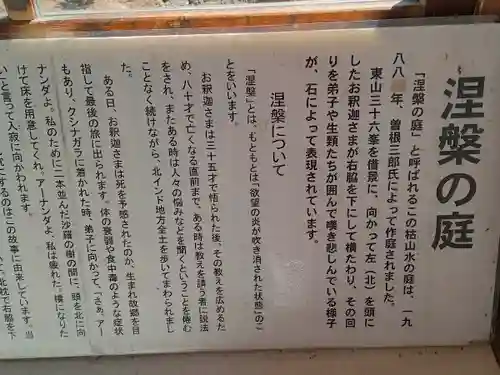 涅槃の庭
「涅槃の庭」と呼ばれるこの枯山水の庭は、一九
八八年、曽根三郎氏によって作庭されました。
東山三十六峯を借景に、向かって左（北）を頭に
したお釈迦さまが右脇を下にして横たわり、その回
りを弟子や生類たちが囲んで嘆き悲しんでいる様子
が、石によって表現されています。
涅槃について
「涅槃」とは、もともとは「欲望の炎が吹き消された状態」のこ
とをいいます。
お釈迦さまは三十五才で悟られた後、その教えを広めるた
め、八十才で亡くなる直前まで、ある時は教えを請う者に説法
をされ、またある時は人々の悩みなどを聞くということを倦む
ことなく続けながら、北インド地方全土を歩いてまわられまし
た。
ある日、お釈迦さまは死を予感されたのか、生まれ故郷を目
指して最後の旅に出られます。体の衰弱や食中毒のような症状
もあり、クシナガラに着かれた時、弟子に向かって、「さあ、アー
ナンダよ。私のために二本並んだ沙羅の樹の間に、頭を北に向
けて床を用意してくれ。アーナンダよ、私は疲れた。横になりた
い」と言って入寂に向かわれます。
にするのはこの故事に由来しています。当
北枕で右脇を下